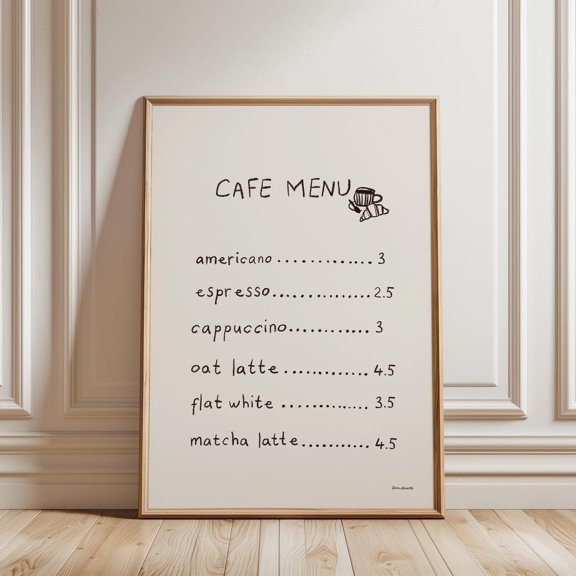 CAFE MENU
americano ............. 3
espresso............... 2.5
cappuccino............ 3
oat latte .............. 4.5
flat white ............. 3.5
matcha latte........... 4.5